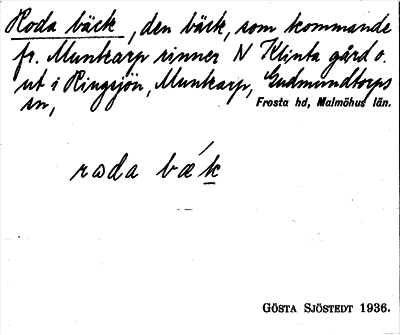 Roda bäck, den bäck, som kommande
fr. Munkarp rinner N Klinta gård o.
ut i Ringsjön, Munkarp, Gudmundtorps
sn,
Frosta hd, Malmöhus län.
rada bæ´k
GÖSTA SJÖSTEDT 1936.